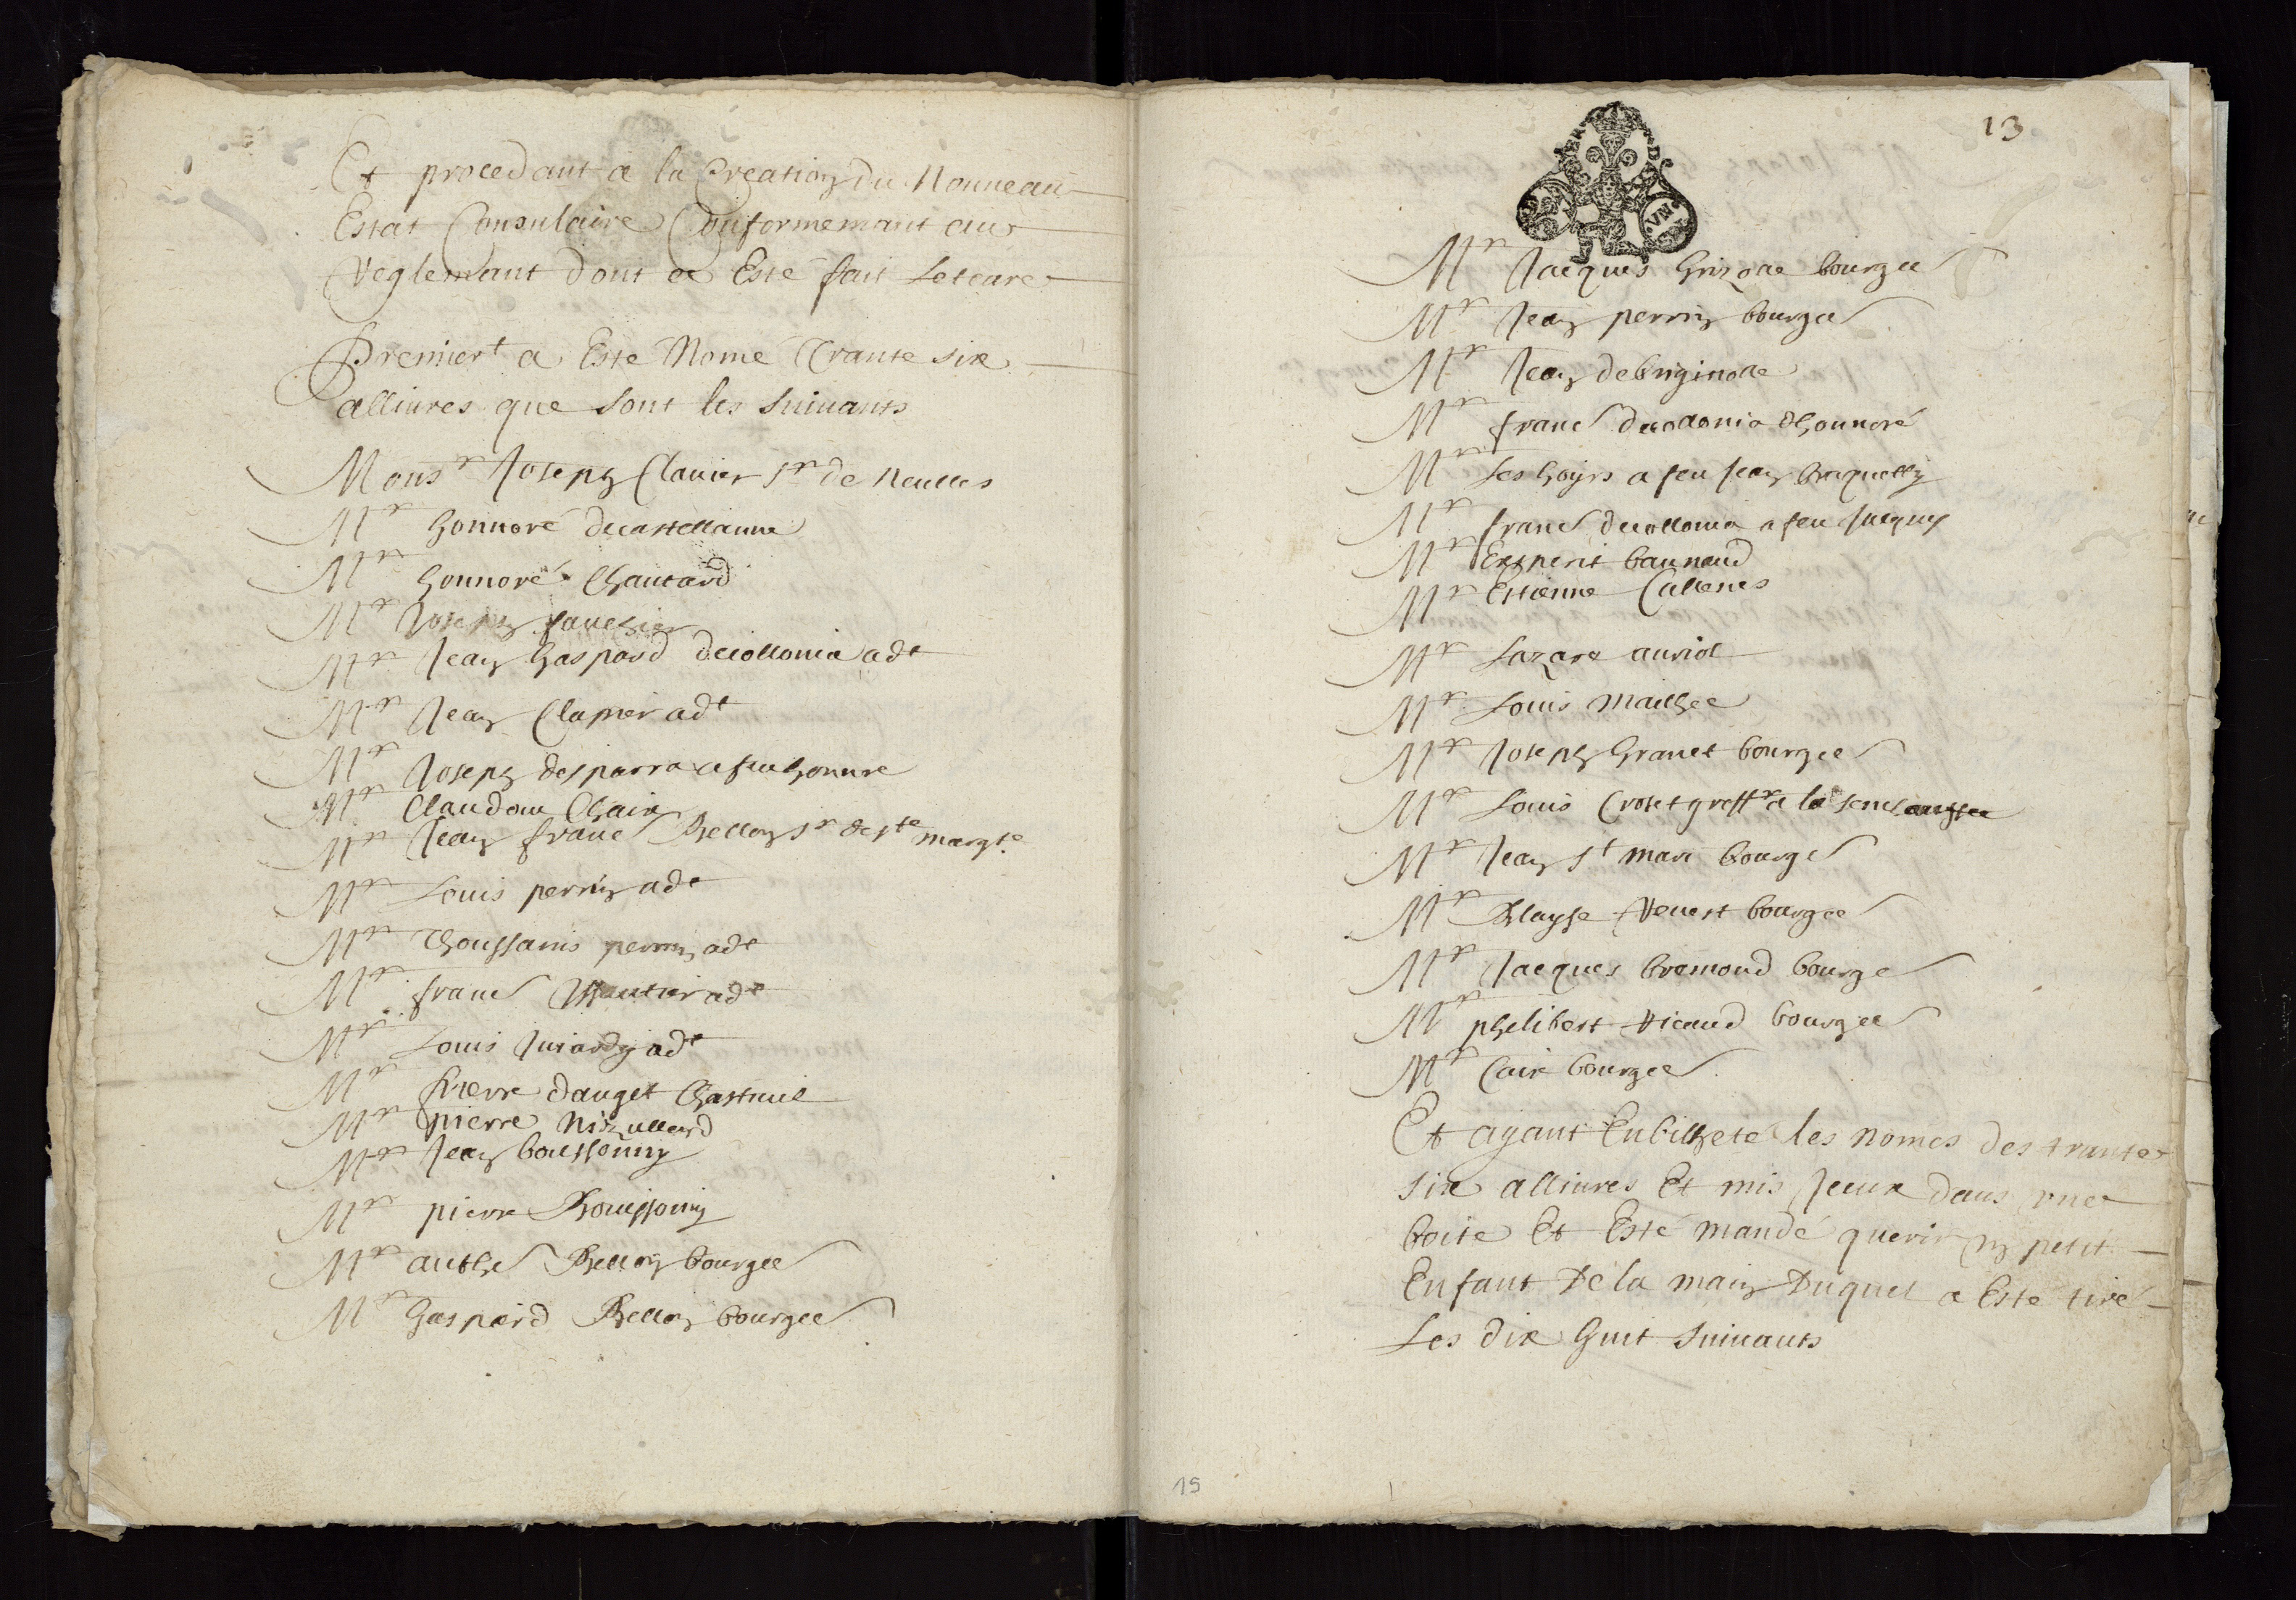 Et procedant a la Creation du Nouueau
Estat Consulaire Conformemant au
Reglemant dont a Esté fait lecture
Premier.t a Esté Nomé Trante six
alliurés que sont les suiuants
Mons.r Joseph Clauier s.r de Neulles
M.r honnoré decastellanne
M.r honnoré Chautard
M.r Joseph fauchier
M.r Jean Gaspard decollonia ad.t
M.r Jean Clapier ad.t
M.r Joseph desparra a feu honnore
M.r Claude Chaix
M.r Jean franc Bellon s.r de s.te marg.te
M.r Louis perrin ad.t
M.r Thoussans perrin ad.t
M.r franc ad.t
M.r Louis ad.t
M.r pierre dauget Chasteuil
M.r pierre
M.r Jean bouissonny
M.r pierre Bouissonny
M.r anthe Bellon bourgee
M.r Gaspard Bellon bourgee
13
VN
M.r Jacques bourgee
M.r Jean perrin bourgee
M.r Jean debriginolle
M.r franc decollonia dhonnoré
M.rs Les hoirs a feu Jean
M.r franc decollonia a feu Jacques
M.r Exsperit baunaud
M.r Estienne Callenes
M.r Lazare auriol
M.r Louis mailhee
M.r Joseph Granet bourgee
M.r Louis Croset greff.r a la
M.r Jean s.t marc bourge
M.r Blayse Reuest bourgee
M.r Jacques bremond bourge
M.r phelibert Ricaud bourgee
M.r Caire bourgee
Et ayant Enbilheté les nomes des trante
six alliurés Et mis Jceux dans vne
boite Et Esté mandé querir vn petit
Enfant De la main Duquel a Esté tiré
Les dix huit suiuants
15